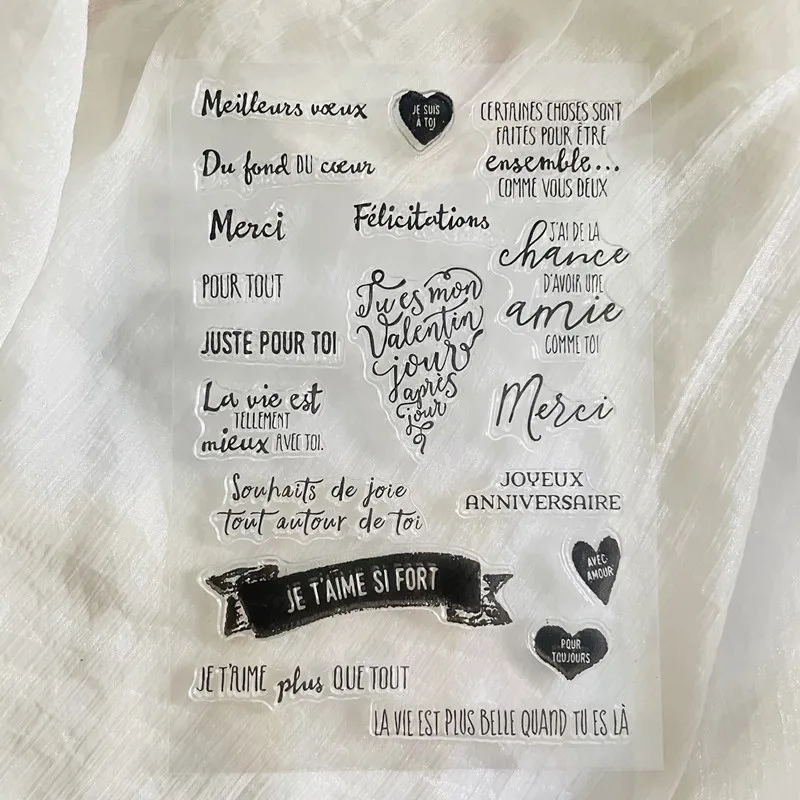 Meilleurs vœux
JE SUIS
À TOI
CERTAINES CHOSES SONT
FAITES POUR ÊTRE
ensemble...
COMME VOUS DEUX
Du fond DU cœur
Merci
Félicitations
J'AI DE LA
chance
D'AVOIR UNE
amie
COMME TOI
POUR TOUT
JUSTE POUR TOI
Tu es mon
Valentin
jour
après
jour
La vie est
TELLEMENT
mieux AVEC TOI.
Merci
Souhaits de joie
tout autour de toi
JOYEUX
ANNIVERSAIRE
AVEC
AMOUR
JE T'AIME SI FORT
POUR
TOUJOURS
JE T'AIME plus QUE TOUT
LA VIE EST PLUS BELLE QUAND TU ES LÀ